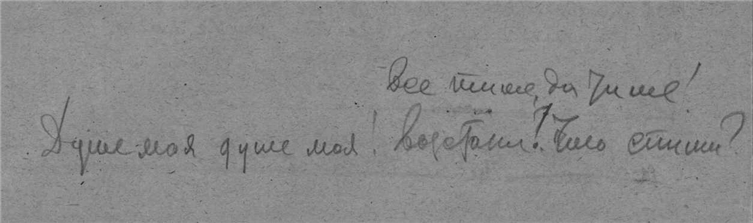 Все тише, да тише!
Душе моя душе моя! Возстани! Что спиши?